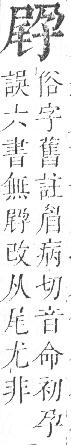 俗字舊註眉病切音命初孕
誤六書無改从尾尤非